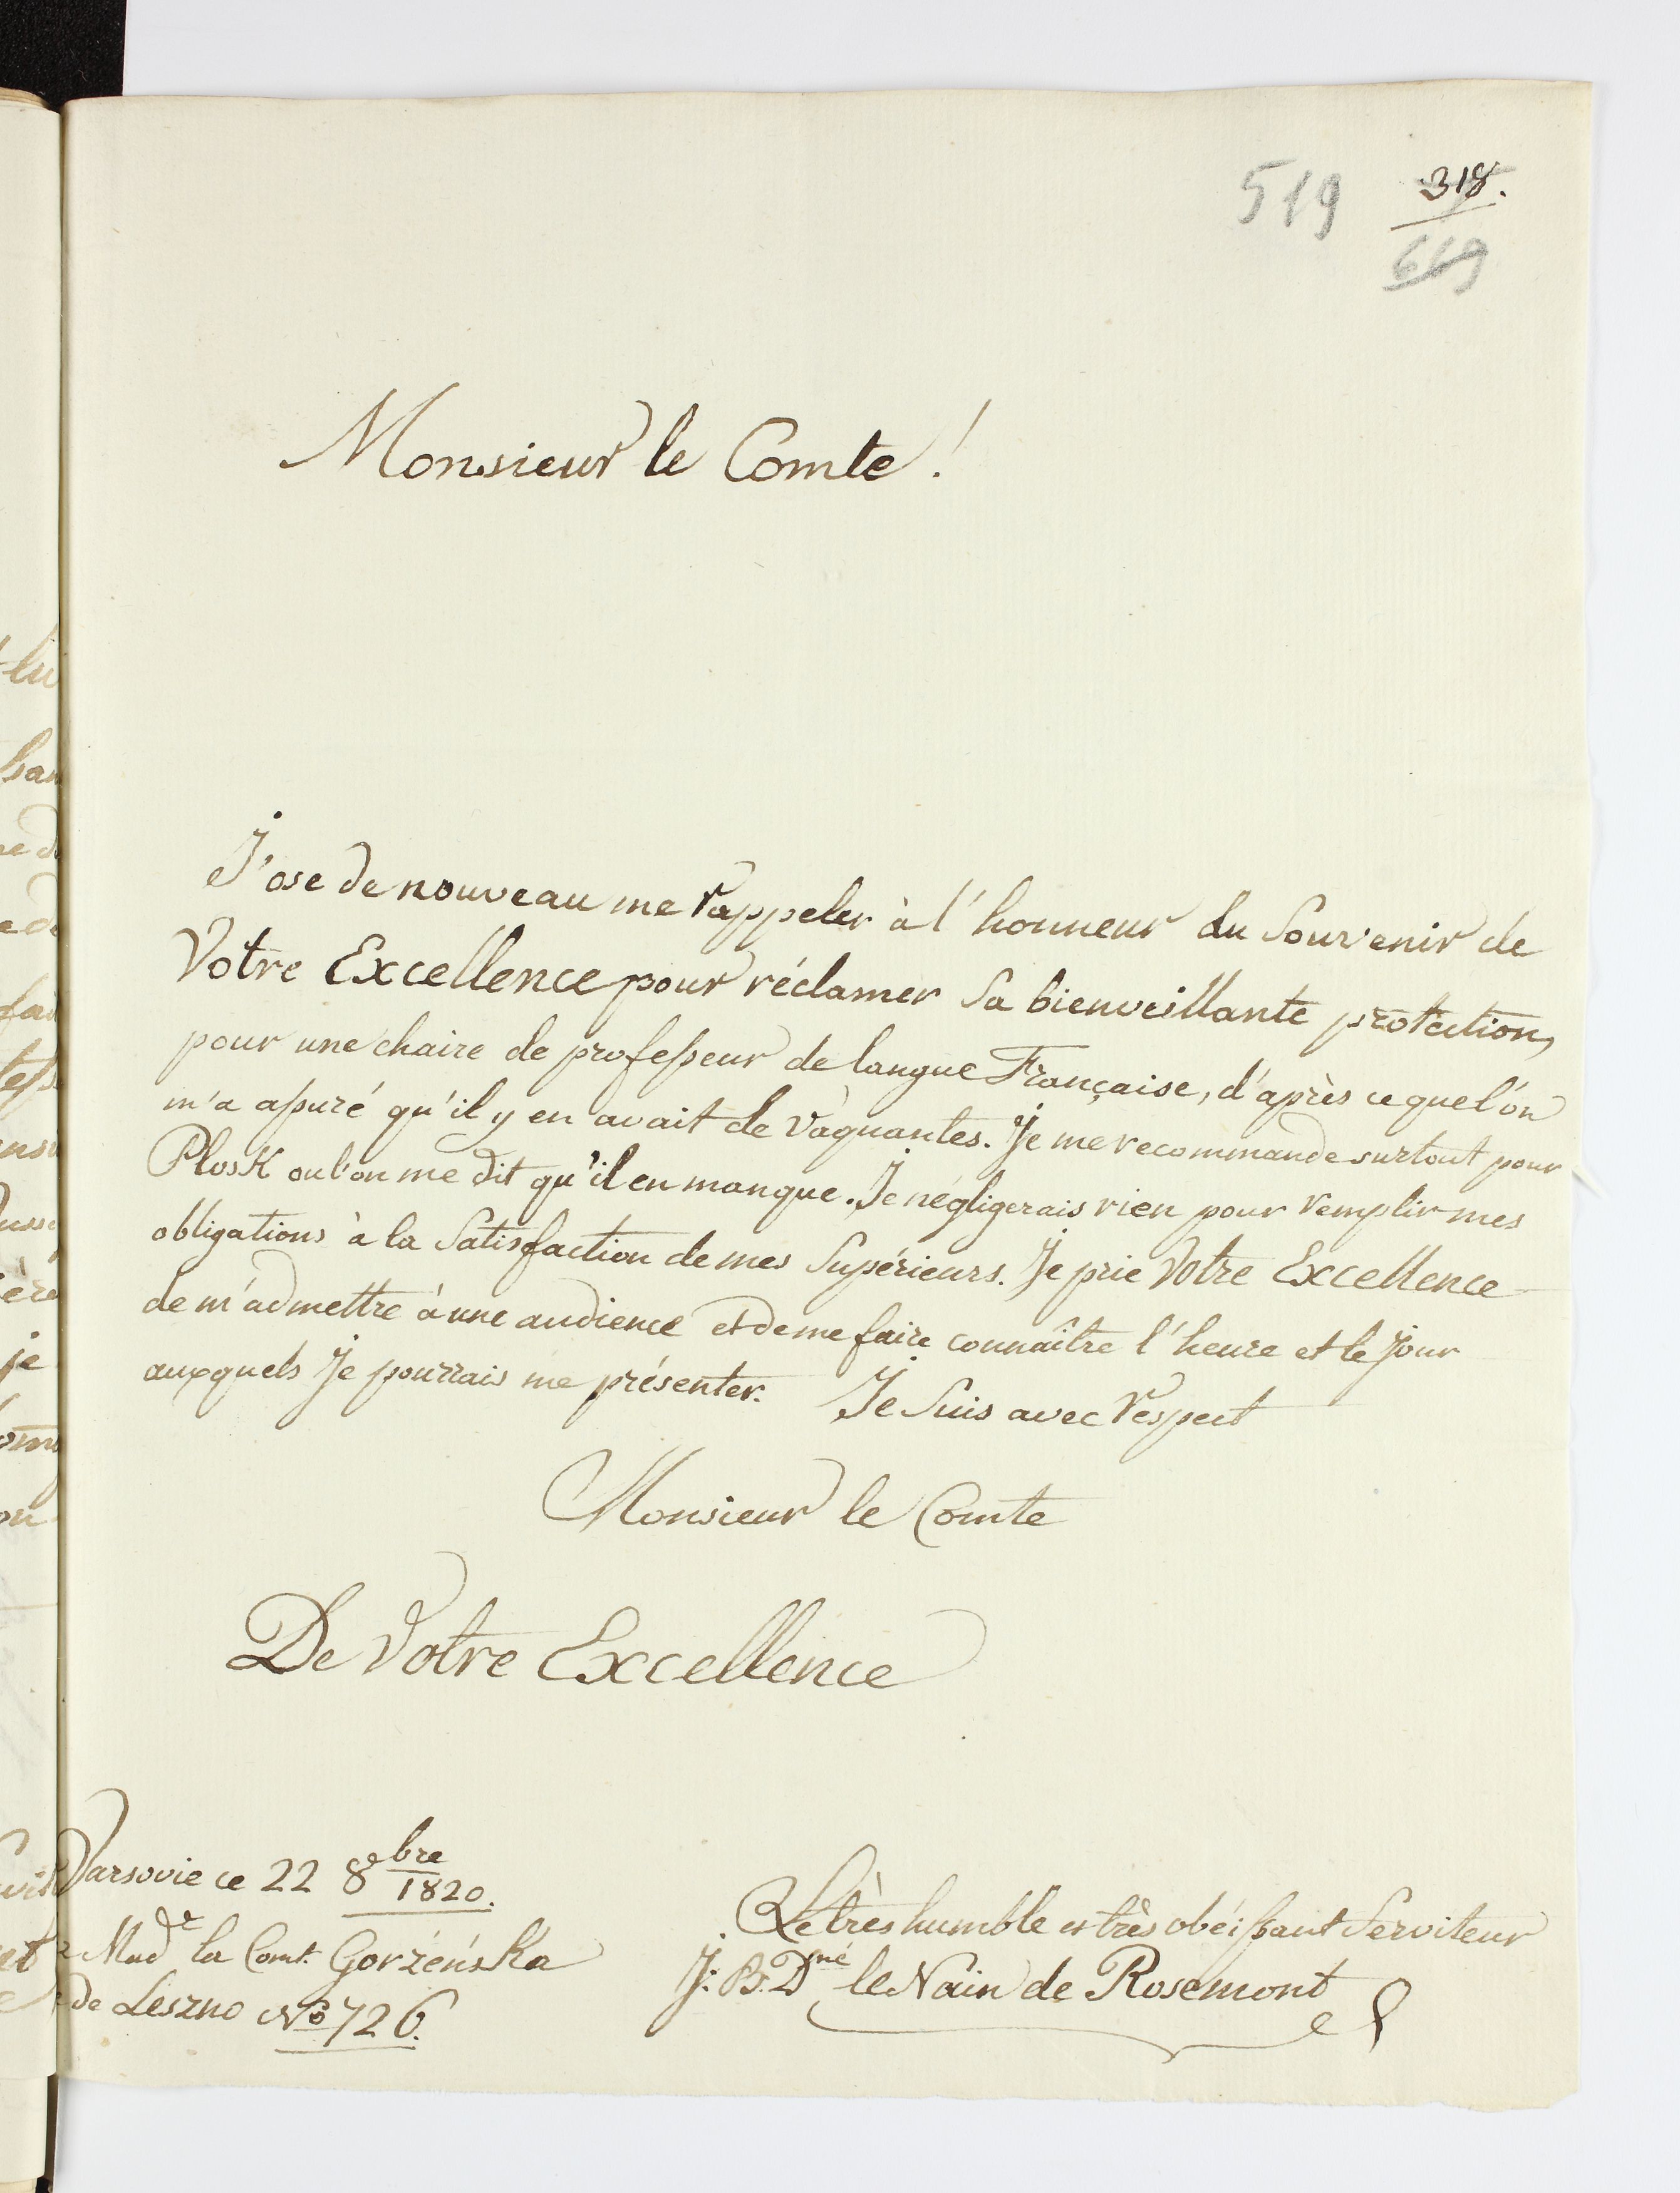 519 318.
669
Monsieur le Comte!
J'ose de nouveau me rappeler à l'honneur du Souvenir de
Votre Excellence pour réclamer Sa bienveillante protection,
pour une chaire de professeur de langue Française, d'après ce que l'on
m'a assuré qu'il y en avait de vaquantes. Je me recommande surtout pour
PlosK ou l'on me dit qu'il en manque. Je négligerais rien pour remplir mes
obligations à la Satisfaction de mes Supérieurs. Je prie Votre Excellence
de m'admettre à une audience et de me faire connaître l'heure et le Jour
auxquels Je pourrais me présenter. Je Suis avec respect
Monsieur le Comte
De Votre Excellence
Varsovie ce 22 8bre 1820.
Made la Comt. Gorżeńska
de Leszno No 726.
Le très humble et très obéissant Serviteur
J. B. Dné le Nain de Rosemont